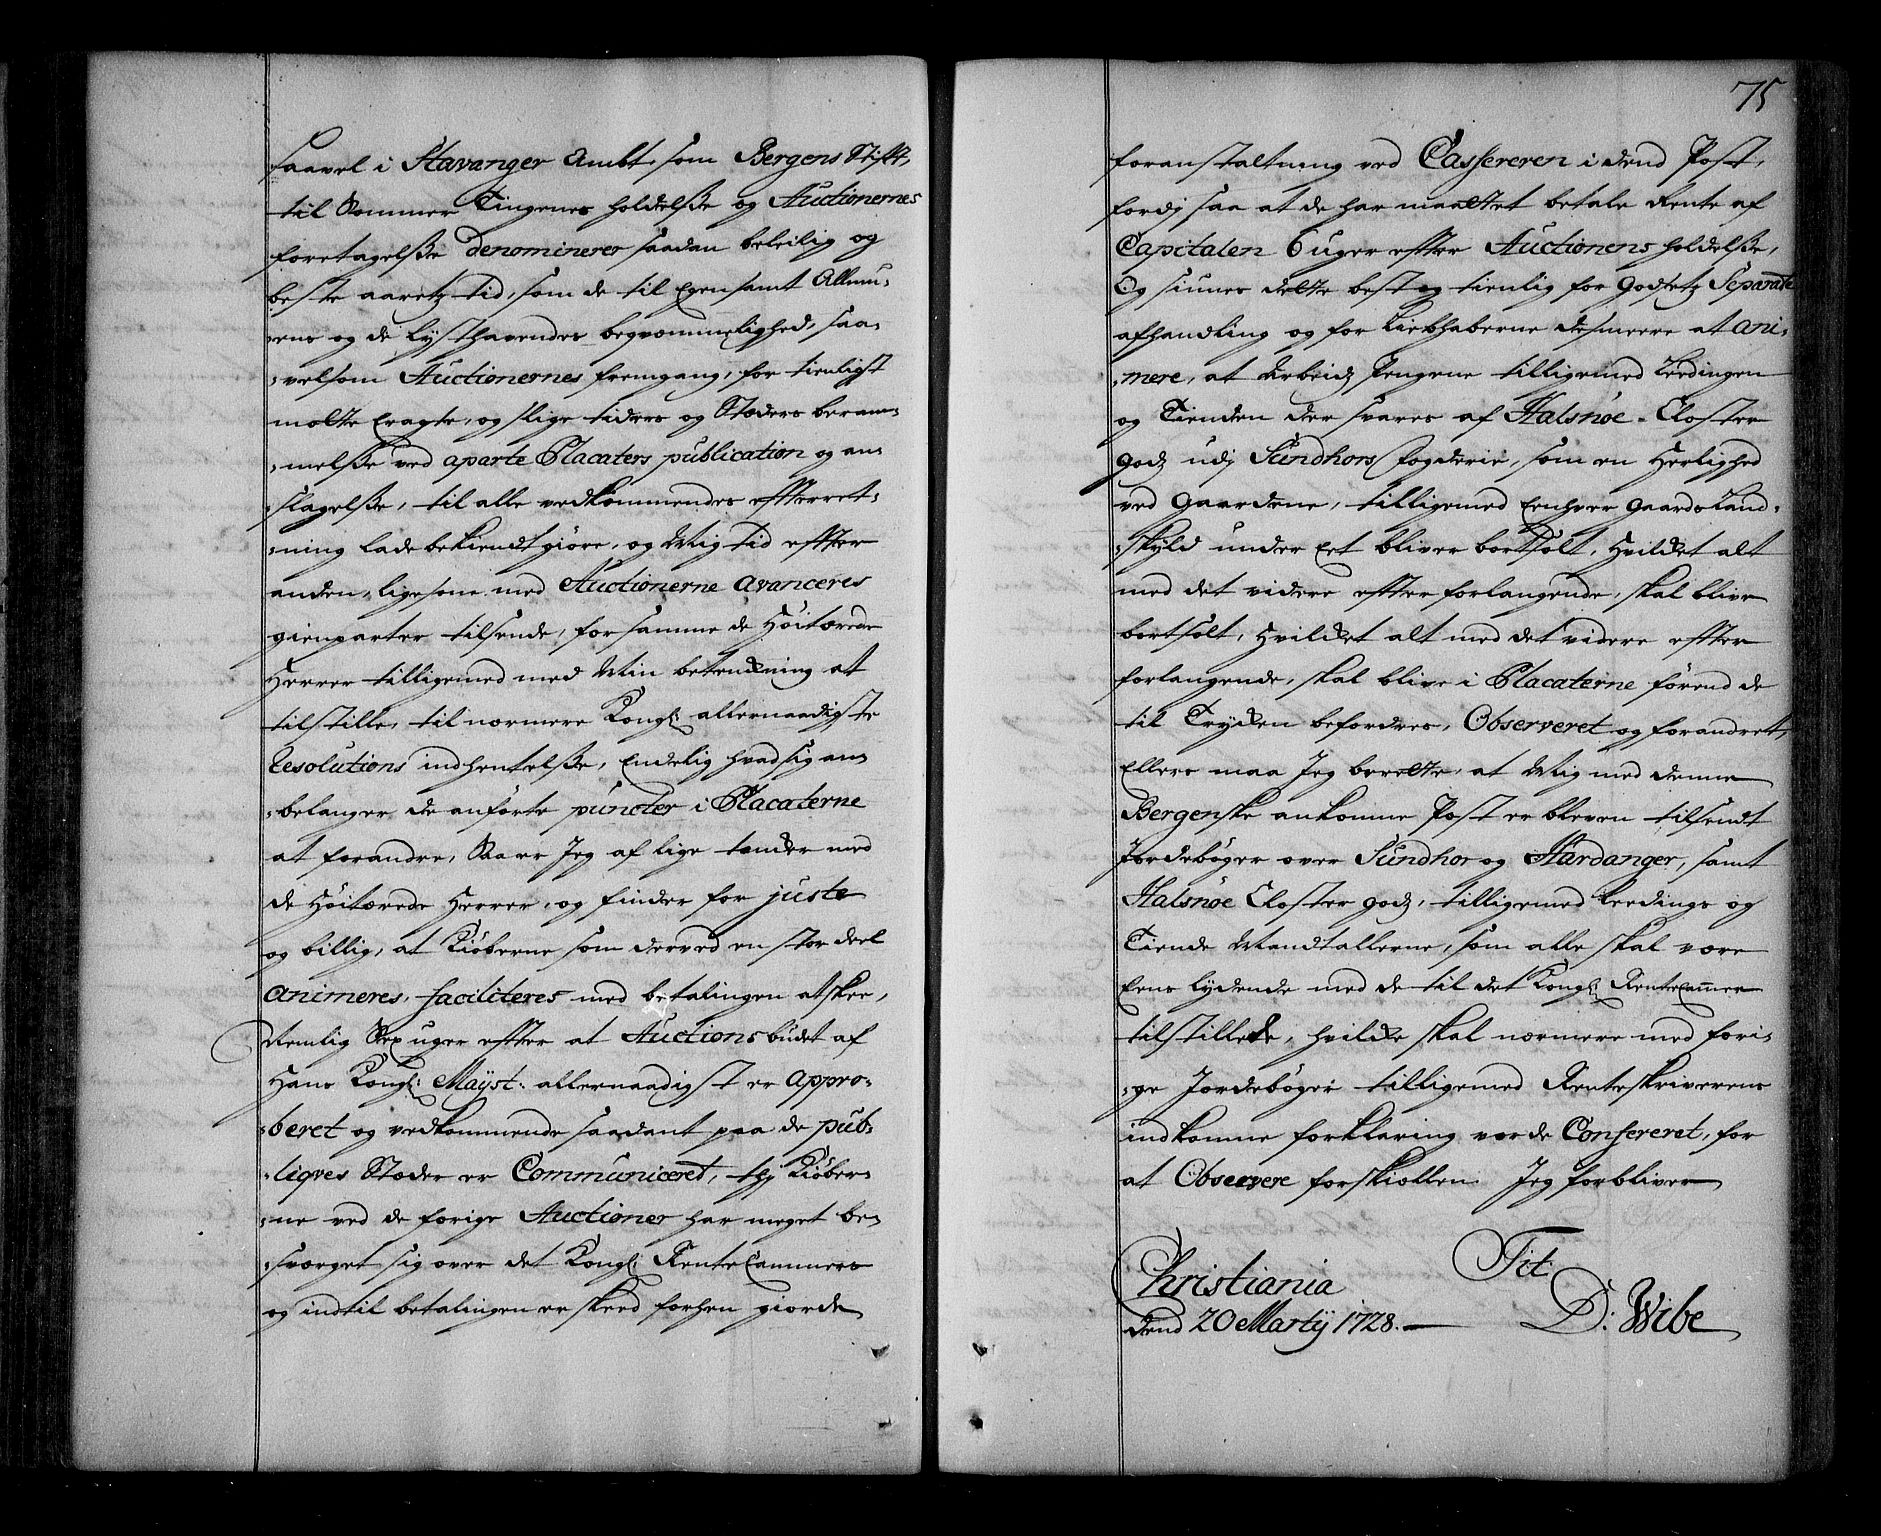 saavel i Stavanger Ambt som Bergens Stift,
til Sommer Tingenes holdelsse og Auctionernes
foretagelsse denominerer saadan beleilig og
beste aaretz tid, som de til Egen samt Allmu-
-ens og de lysthavendes beqvommelighed, saa-
-velsom Auctionernes fremgang, for tienligst
motte Eragte, og slige tiders og Stæders beram-
-melsse ved aparte Placaters publication og an-
-slagelsse, til alle vedkommendes effterret-
-ning lade bekiendtgiøre, og Mig tid effter
anden, ligesom med Auctionerne avanceres
gienparter tilsende, for samme de Høitærede
Herrer tilligemed med Min betenckning at
tilstille, til nærmere Kongl: allernaadigste
Resolutions indhentelsse, Endelig hvad sig an-
-belanger de anførte puncter i Placaterne
at forandre, Da er Jeg af lige tancker med
de Høitærede Herrer, og finder for juste
og billig, at Kiøberne som derved en stor deel
animeres, faciliteres med betalingen at skee,
Nemlig Sex uger effter at Auctions budet af
Hans Kongl: Mayst: allernaadigst er appro-
-beret og vedkommende saadant paa de pub-
-liqves Stæder er Communiceret, thj Kiøber-
-ne ved de forige Auctioner har meget be-
-sværget sig over det Kongl: Rente Cammers
og indtil betalingen er skeed forhen giorde
75
foranstaltning ved Cassereren i dend Post,
fordj saa at de har maattet betale Rente af
Capitalen 6 uger effter Auctionens holdelsse,
Og siunes dette best og tienlig for Godsetz Separate
afhandling og for Liebhaberne desmeere at ani-
-mere, at Arbeidz Pengene tilligemed Leedingen
og Tienden der svares af Halsnøe-Closter
godz udj Sundhors Fogderie, som en Herlighed
ved Gaardene, tilligemed Eenhver Gaards Land-
-skyld under Eet bliver bortsolt, Hvilcket alt
med det videre effter forlangende, skal blive
bortsolt, Hvilcket alt med det videre effter
forlangende, skal blive i Placaterne førend de
til Trycken befordres, Observeret og forandret,
Ellers maa Jeg berette, at Mig med denne
Bergenske ankomne Post er bleven tilsendt
Jordebøger over Sundhor og Hardanger, samt
Halsnøe Closter godz, tilligemed Leedings og
Tiende Mandtallerne, som alle skal være
Eens lydende med de til det Kongl: Rente Cammer
tilstillede, hvilcke skal nærmere med fori-
-ge Jordebøger tilligemed Renteskriverens
indkomne forklaring vorde Confereret, for
at Observere forskiællen. Jeg forbliver
Tit:
Christiania
dend 20 Martij 1728.
D: Wibe